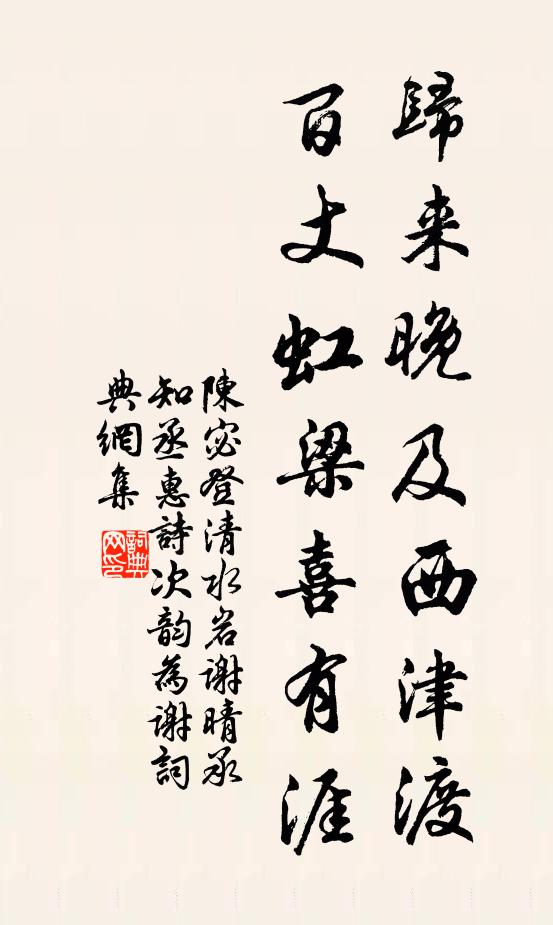 歸来晚及西津渡
百丈虹梁喜有涯
陳宓登清水岩谢晴承
知丞惠詩次韵為谢詞
典網集
詞典
网印